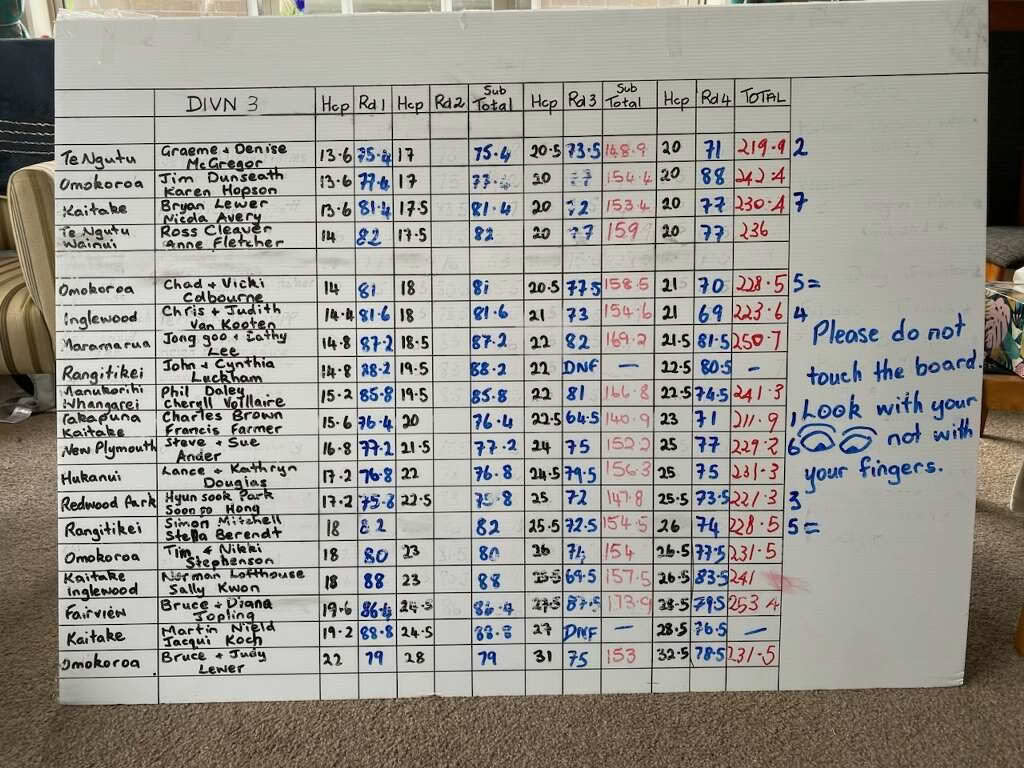 DIVN 3 Hcp Rd 1 Hcp Rd 2 Sub Total Hcp Rd 3 Sub Total Hcp Rd 4 TOTAL
Te Ngutu Graeme + Denise McGregor 13.6 75.4 17 75.4 20.5 73.5 148.9 20 71 219.9 2
Omokoroa Jim Dunseath Karen Hopson 13.6 77.4 17 77.4 20 77 154.4 20 88 242.4
Kaitake Bryan Lewer Nicola Avery 13.6 81.4 17.5 81.4 20 72 153.4 20 77 230.4 7
Te Ngutu Wainui Ross Cleaver Anne Fletcher 14 82 17.5 82 20 77 159 20 77 236
Omokoroa Chad + Vicki Colbourne 14 81 18 81 20.5 77.5 158.5 21 70 228.5 5=
Inglewood Chris + Judith Van Kooten 14.4 81.6 18 81.6 21 73 154.6 21 69 223.6 4
Maramarua Jong goo + Cathy Lee 14.8 87.2 18.5 87.2 22 82 169.2 21.5 81.5 250.7
Rangitikei John + Cynthia Luckham 14.8 88.2 19.5 88.2 22 DNF — 22.5 80.5 —
Manukorihi Whangarei Phil Daley Cheryll Voillaire 15.2 85.8 19.5 85.8 22 81 166.8 22.5 74.5 241.3
Takapuna Kaitake Charles Brown Francis Farmer 15.6 76.4 20 76.4 22.5 64.5 140.9 23 71 211.9 1
New Plymouth Steve + Sue Ander 16.8 77.2 21.5 77.2 24 75 152.2 25 77 229.2 6
Hukanui Lance + Kathryn Douglas 17.2 76.8 22 76.8 24.5 79.5 156.3 25 75 231.3
Redwood Park Hyun sook Park Soon so Hong 17.2 75.8 22.5 75.8 25 72 147.8 25.5 73.5 221.3 3
Rangitikei Simon Mitchell Stella Berendt 18 82 82 25.5 72.5 154.5 26 74 228.5 5=
Omokoroa Tim + Nikki Stephenson 18 80 23 80 26 74 154 26.5 77.5 231.5
Kaitake Inglewood Norman Lofthouse Sally Kwon 18 88 23 88 69.5 157.5 26.5 83.5 241
Fairview Bruce + Diana Jopling 19.6 86.4 24.5 86.4 27.5 87.5 173.9 28.5 79.5 253.4
Kaitake Martin Nield Jacqui Koch 19.2 88.8 24.5 88.8 27 DNF — 28.5 76.5 —
Omokoroa Bruce + Judy Lewer 22 79 28 79 31 75 153 32.5 78.5 231.5
Please do not
touch the board.
Look with your
not with
your fingers.